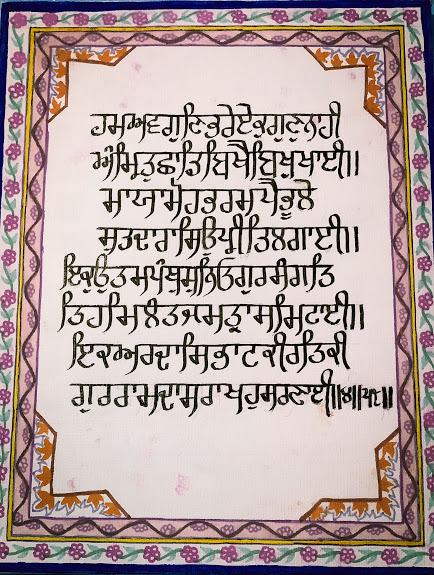 ਹਮਅਵਗੁਣਿਭਰੇਏਕੁਗੁਣੁਨਾਹੀ
ਅੰਮ੍ਰਿਤੁਛਾਡਿਬਿਖੈਬਿਖੁਖਾਈ॥
ਮਾਯਾਮੋਹਭਰਮਪੈਭੂਲੇ
ਸੁਤਦਾਰਾਸਿਉਪ੍ਰੀਤਿਲਗਾਈ॥
ਇਕੁਉਤਮਪੰਥੁਸੁਨਿਓਗੁਰਸੰਗਤਿ
ਤਿਹਮਿਲੰਤਜਮਤ੍ਰਾਸਮਿਟਾਈ॥
ਇਕਅਰਦਾਸਿਭਾਟਕੀਰਤਿਕੀ
ਗੁਰਰਾਮਦਾਸਰਾਖਹੁਸਰਣਾਈ॥੪॥੫੮॥